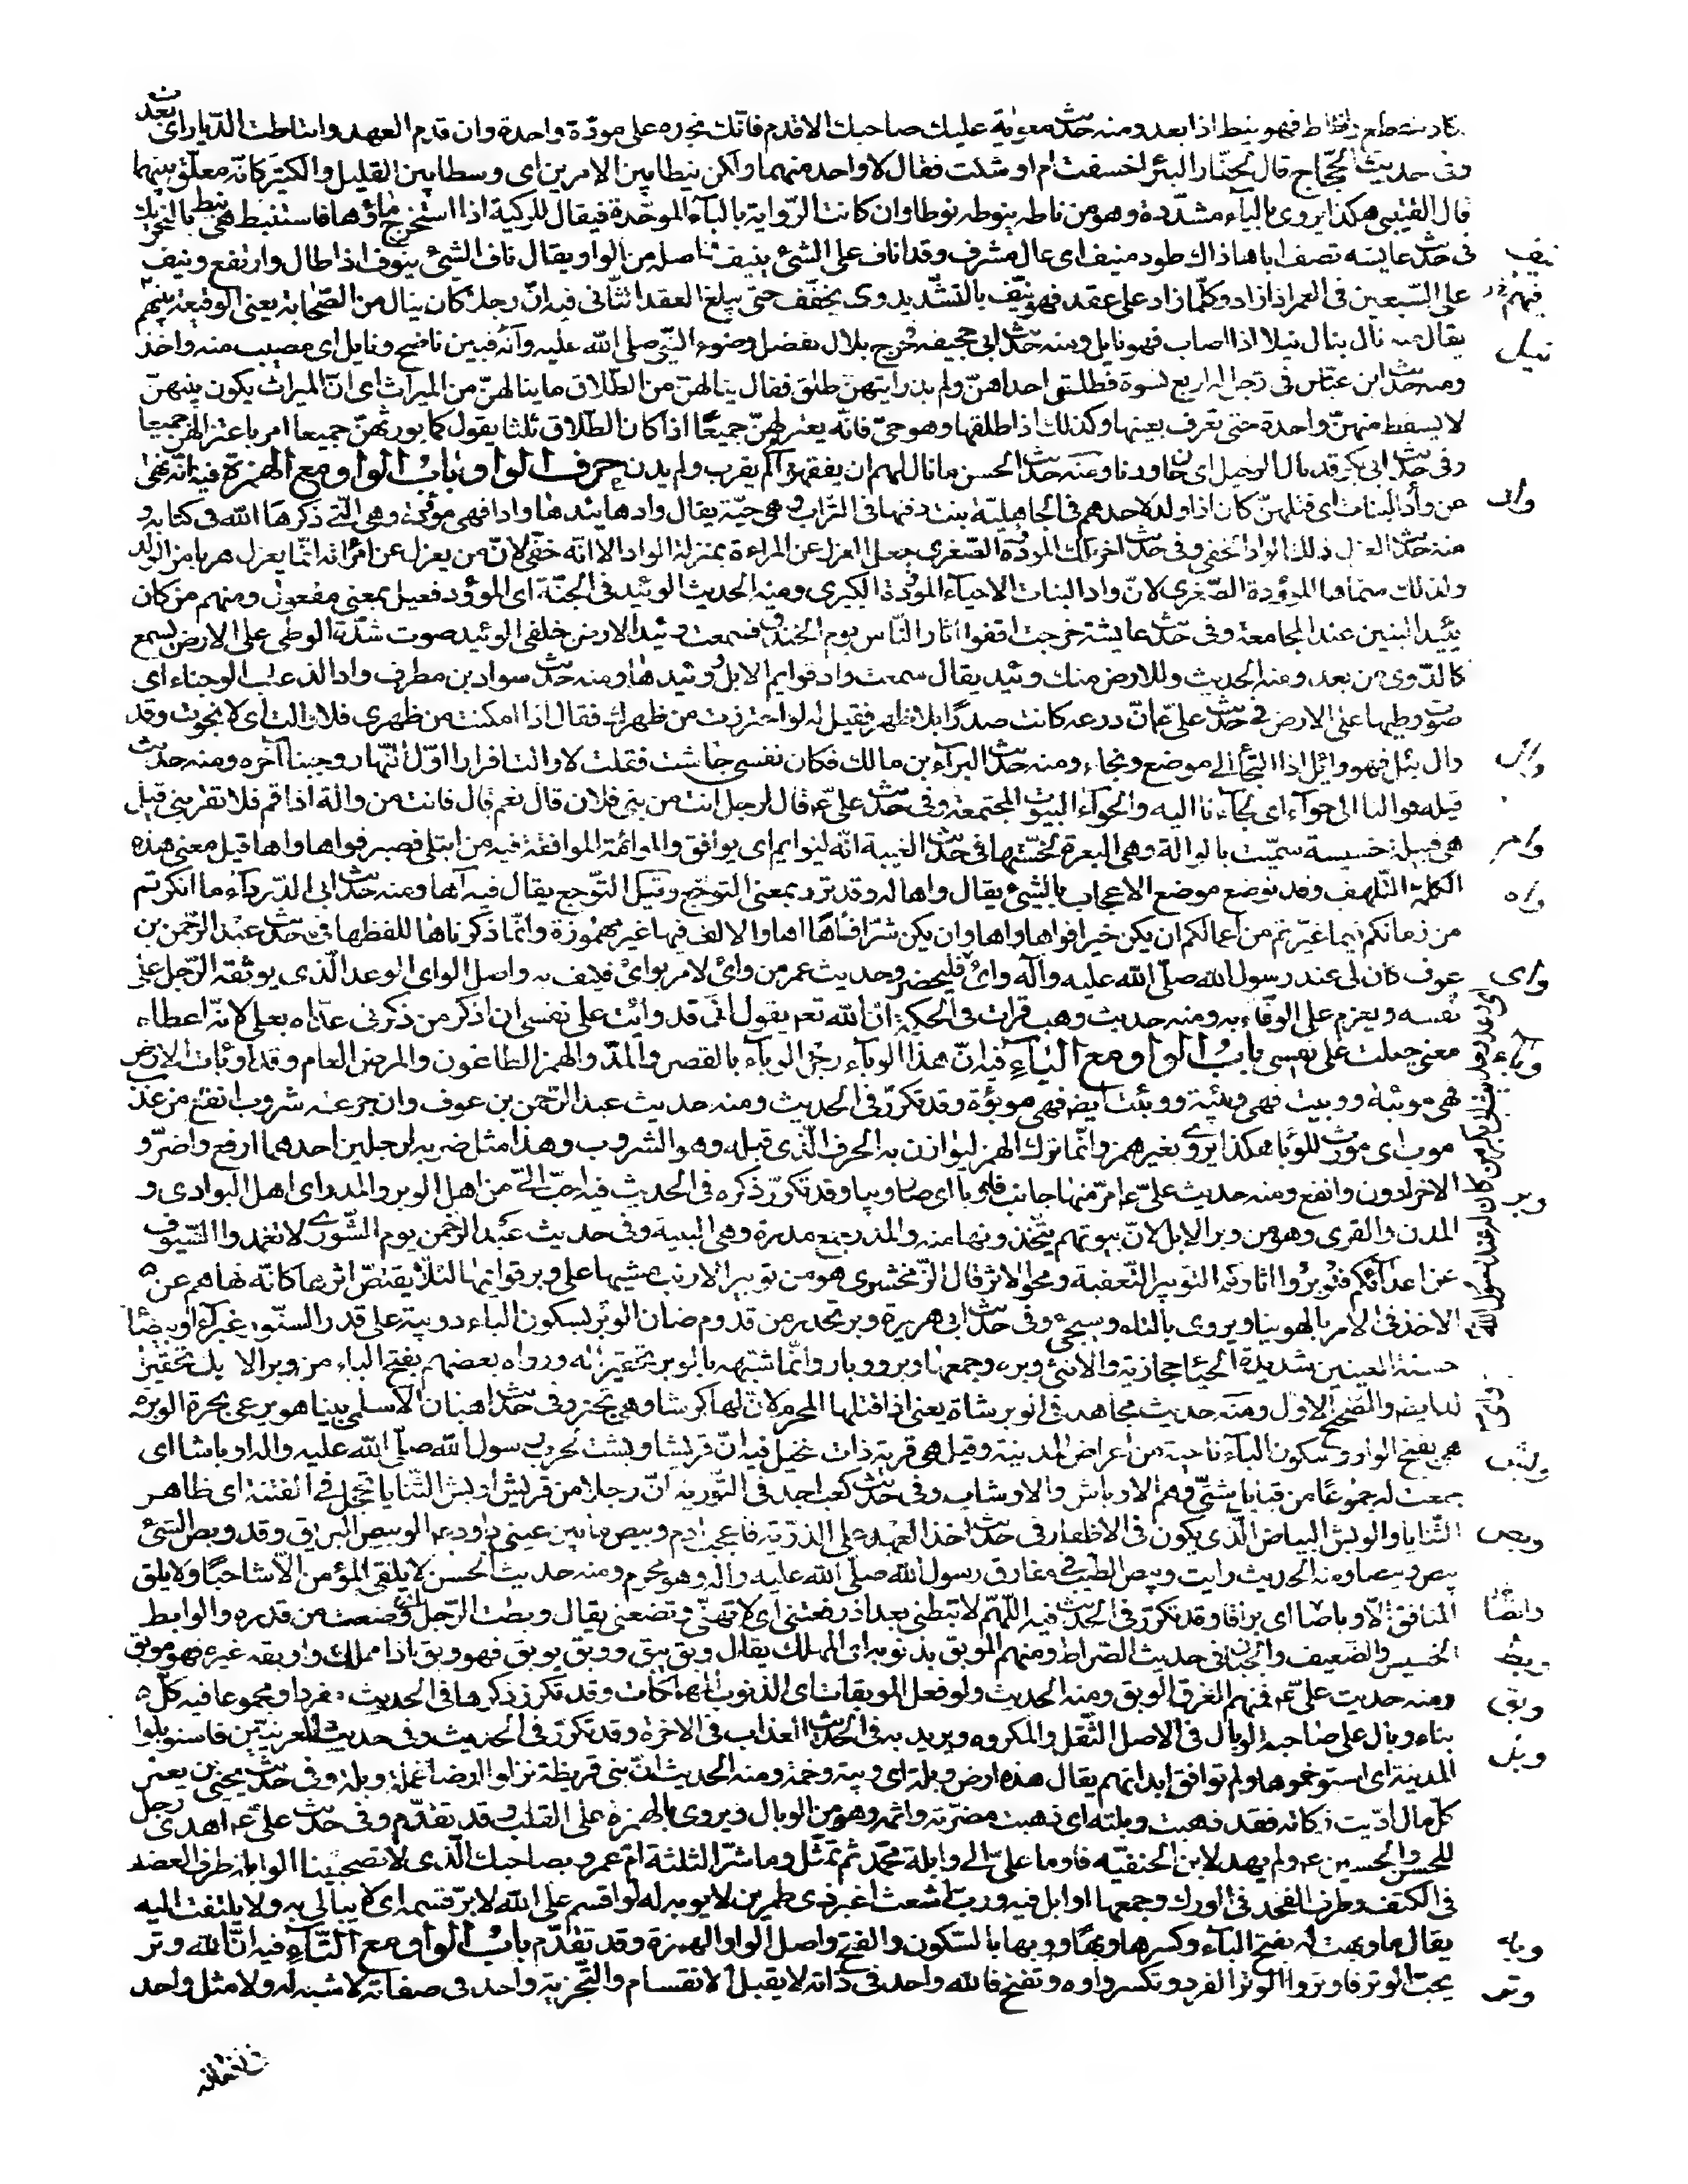 فهو ينيط اذا بعد ومنه حديث معوية عليك صاحبك الاقدم فانك تجده على مودّة واحدة وان قدم العهد وانتاطت الدّيار اى بعدت
وفى حديث الحجّاج قال لحفّار البئر اخسفت ام اوشلت فقال لا واحد منهما ولكن نيطا بين الامرين اى وسطا بين القليل والكثير كانّه معلّق بينهما
قال القتيبى هكذا يروى بالياء مشدّدة وهو من ناطه ينوطه نوطا وان كانت الرّواية بالباء الموحّدة فيقال للركية اذا استخرج ماؤها فاستنبط هى نبط بالتحريك
نيف فى حديث عايشه تصف اباها ذاك طود منيف اى عال مشرف وقد اناف على الشئ ينيف اصله من الواو يقال ناف الشئ ينوف اذا طال وارتفع ونيف
على السّبعين فى العمر اذا زاد وكلّما زاد على عقد فهو نيّف بالتشديد وقد يخفّف حتى يبلغ العقد الثّانى فيه انّ رجلا كان ينال من الصّحابة يعنى الوقيعة فيهم
نيل يقال منه نال ينال نيلا اذا اصاب فهو نايل ومنه حديث ابى جحيفه فخرج بلال بفضل وضوء النّبى صلى الله عليه وآله فبين ناضح ونايل اى مصيب منه واخذ
ومنه حديث ابن عبّاس فى رجل له اربع نسوة فطلق احداهنّ ولم يدر ايتهنّ طلق فقال ينالهنّ من الطّلاق ما ينالهنّ من الميراث اى انّ الميراث يكون بينهنّ
لا يسقط منهنّ واحدة حتى تعرف بعينها وكذلك اذا طلقها وهو حىّ فانّه يعتزلهنّ جميعًا اذا كان الطّلاق ثلثا يقول كما يورثهنّ جميعا امر باعتزالهنّ جميعا
وفى حديث ابى بكر قد نال الرحيل اى حان ودنا ومنه حديث الحسن ما نال لهم ان يفقهوا اى لم يقرب ولم يدن حرف الواو باب الواو مع الهمزة فيه انّه نهى
واد عن وأد البنات اى قتلهنّ كان اذا ولد لاحدهم فى الجاهليّة بنت دفنها فى التراب وهى حيّة يقال وادها يئدها وادا فهى موؤدة وهى الّتى ذكرها الله فى كتابه و
منه حديث العزل ذلك الواد الخفى وفى حديث اخر تلك الموؤدة الصّغرى جعل العزل عن المراءة بمنزلة الواد الا انّه خفّى لانّ من يعزل عن امرأته انّما يعزل هربا من الولد
ولذلك سمّاها الموؤدة الصّغرى لانّ واد البنات الاحياء الموؤدة الكبرى ومنه الحديث الوئيد فى الجنّة اى الموؤد فعيل بمعنى مفعول ومنهم من كان
يئيد البنين عند المجاعة وفى حديث عايشة خرجت اقفوا اثار النّاس يوم الخندق فسمعت وئيد الارض خلفى الوئيد صوت شدّة الوطى على الارض يسمع
كالدّوى من بعد ومنه الحديث وللارض منك وئيد يقال سمعت واد قوايم الابل ووئيدها ومنه حديث سواد بن مطرف واد الذعلب الوجناء اى
صوت وطيها على الارض فى حديث علىّ ع انّ درعه كانت صدرًا بلا ظهر فقيل له لو احترزت من ظهرك فقال اذا امكنت من ظهرى فلا والت اى لا نجوت وقد
وال وال يئل فهو وائل اذا التجأ الى موضع ونجاء ومنه حديث البراء بن مالك فكان نفسى جاشت فقلت لا والت افرارا اوّل النّهار وجبنا آخره ومنه حديث
قيله فوالنا الى حوآء اى لجأنا اليه والحوآء البيوت المجتمعة وفى حديث علىّ ع قال لرجل انت من بنى فلان قال نعم قال فانت من والة اذا قم فلا تقربنى قيل
وام هى قبيلة خسيسة سمّيت بالوالة وهى البعرة لخسّتها فى حديث الغيبة انّه ليوايم اى يوافق والموائمة الموافقة فيه من ابتلى فصبر فواها واها قيل معنى هذه
واه الكلمة التّلهف وقد توضع موضع الاعجاب بالشئ يقال واها له وقد ترد بمعنى التوجّع وقيل التوجع يقال فيه آها ومنه حديث ابى الدّرداء ما انكرتم
من زمانكم فيما غيّرتم من اعمالكم ان يكن خيرا فواها واها وان يكن شرّا فآها اها والالف فيها غير مهموزة وانّما ذكرناها للفظها فى حديث عبد الرّحمن بن
واى عوف كان لى عند رسول الله صلّى الله عليه وآله واى فليحضر وحديث عمر من واى لامر بواى فليف به واصل الواى الوعد الّذى يوثقه الرّجل على
نفسه ويعزم على الوفاء به ومنه حديث وهب قرات فى الحكمة انّ الله تعم يقول انّى قد وايت على نفسى ان اذكر من ذكرنى عدّاه بعلى لانّه اعطاه
وباء معنى جعلت على نفسى باب الواو مع الباء فيه انّ هذا الوباء رجز الوباء بالقصر والمدّ والهمز الطاعون والمرض العام وقد اوبات الارض
فهى موبئة ووبيت فهى وبئية ووبئت ايض فهى موبؤة وقد تكرّر فى الحديث ومنه حديث عبد الرّحمن بن عوف وان جرعه شروب انفع من عذب
موب اى مورث للوبا هكذا يروى بغير همز وانّما ترك الهمز ليوازن به الحرف الّذى قبله وهو الشروب وهذا مثل ضربه لرجلين احدهما ارفع واضرّ و
وبر الاخر ادون وانفع ومنه حديث علىّ ع امرّ منها جانب فاوبا اى صار وبيا وقد تكرّر ذكره فى الحديث فيه احبّ الىّ من اهل الوبر والمدر اى اهل البوادى و
المدن والقرى وهو من وبر الابل لانّ بيوتهم يتّخذونها منه والمدر جمع مدرة وهى البنية وفى حديث عبد الرّحمن يوم الشّورى لا تغمدوا السّيوف
عن اعدائكم فتوبّروا اثاركم التوبير التّعفية ومحو الاثر قال الزّمخشرى هو من توبير الارنب مشيها على وبر قوايمها لئلّا يقتصّ اثرها كانّه نهاهم عن
الاخذ فى الامر بالهوينا ويروى بالتاء وسيجئ وفى حديث ابى هريرة وبر تحدر من قدوم ضان الوبر بسكون الباء دويبة على قدر السنّور غبراء او بيضاء
حسنة العينين شديدة الحياء حجازية والانثى وبرة وجمعها وبور ووبار وانّما شبّهه بالوبر تحقيرًا له ورواه بعضهم بفتح الباء من وبر الابل تحقيرًا
له ايضا والصّحيح الاوّل ومنه حديث مجاهد فى الوبر شاة يعنى اذا قتلها المحرم لانّ لها كرشا وهى تجتر وفى حديث اهبان الاسلمى بينا هو يرعى بحرة الوبرة
وبش هى بفتح الواو وسكون الباء ناحية من اعراض المدينة وقيل هى قرية ذات نخيل فيه انّ قريشا وبشت لحرب رسول الله صلّى الله عليه واله اوباشا اى
جمعت له جموعًا من قبايل شتّى وهم الاوباش والاوشاب وفى حديث كعب اجد فى التّورية انّ رجلا من قريش اوبش الثّنايا يحجل فى الفتنة اى ظاهر
وبص الثّنايا والوبش البياض الّذى يكون فى الاظفار فى حديث اخذ العهد على الذّرّية فاعجب ادم وبيص ما بين عينى داود ع الوبيص البريق وقد وبص الشئ
يبص وبيصا ومنه الحديث رايت وبيص الطّيب فى مفارق رسول الله صلّى الله عليه واله وهو محرم ومنه حديث الحسن لا يلقى المؤمن الّا شاحبًا ولا يلق
المنافق الّا وباصّا اى براقا وقد تكرّر فى الحديث فيه اللّهمّ لا تبطنى بعد اذ رفعتنى اى لا تهنّى وتضعنى يقال وبطت الرّجل اى وضعت من قدره والوابط
وبط الخسيس والضّعيف والجبان فى حديث الصّراط ومنهم الموبق بذنوبه اى المهلك يقال وبق يبق ووبق يوبق فهو وبق اذا هلك واوبقه غيره فهو موبق
وبق ومنه حديث علىّ ع فمنهم الغرق الوبق ومنه الحديث ولو فعل الموبقات اى الذنوب المهلكات وقد تكرّر ذكرها فى الحديث مفردا ومجموعا فيه كلّ
وبل بناء وبال على صاحبه الوبال فى الاصل الثّقل والمكروه ويريد به فى الحديث العذاب فى الاخرة وقد تكرّر فى الحديث وفى حديث العرنيّين فاستوبلوا
المدينة اى استوخموها ولم توافق ابدانهم يقال هذه ارض وبلة اى وبيّة وخمة ومنه الحديث انّ بنى قريظة نزلوا ارضا غملة وبلة وفى حديث يحيى بن يعمر
كلّ مال ادّيت زكاته فقد ذهبت وبلته اى ذهبت مضرّته واثمه وهو من الوبال ويروى بالهمزة على القلب وقد تقدّم وفى حديث علىّ ع اهدى رجل
للحسن والحسين ع ولم يهد لابن الحنفيّه فاوما علىّ الى وابلة محمّد ثم تمثّل وما شرّ الثلثة امّ عمرو بصاحبك الّذى لا تصحبينا الوابلة طرف العضد
فى الكتف وطرف الفخذ فى الورك وجمعها اوابل فيه وربّ اشعث اغبر ذى طمرين لا يوبه له لو اقسم على الله لابرّ قسمه اى لا يبالى به ولا يلتفت اليه
وبه يقال ما وبهت له بفتح الباء وكسرها وبهًا ووبها بالسّكون والفتح واصل الواو الهمزة وقد تقدّم باب الواو مع التّاء فيه انّ الله وتر
وتر يحبّ الوتر فاوتروا الوتر الفرد وتكسر واوه وتفتح فالله واحد فى ذاته لا يقبل الانقسام والتّجزية واحد فى صفاته لا شبه له ولا مثل واحد